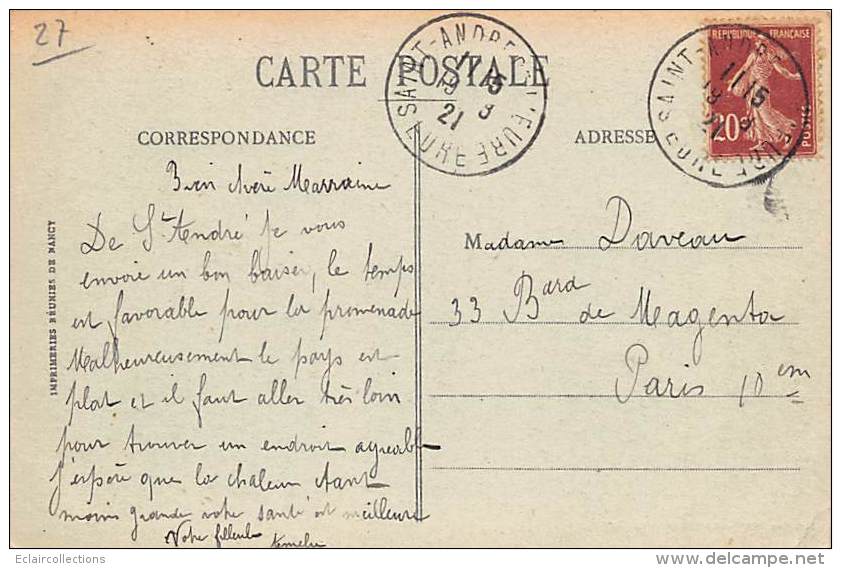 27
CARTE POSTALE
SAINT-ANDRE DE L'EURE
11 15
19 8
21
EURE
REPUBLIQUE FRANÇAISE
20
POSTES
SAINT-ANDRE DE L'EURE
11 15
19 8
21
EURE
CORRESPONDANCE
ADRESSE
Bien chère Marraine
De St André je vous
envoie un bon baiser, le temps
est favorable pour la promenade
Malheureusement le pays est
plat et il faut aller très loin
pour trouver un endroit agréable
j'espère que la chaleur étant
moins grande votre santé est meilleure
Votre filleule
Madame Daveau
33 Bard de Magenta
Paris 10em
IMPRIMERIES RÉUNIES DE NANCY
Eclaircollections
delcampe.net